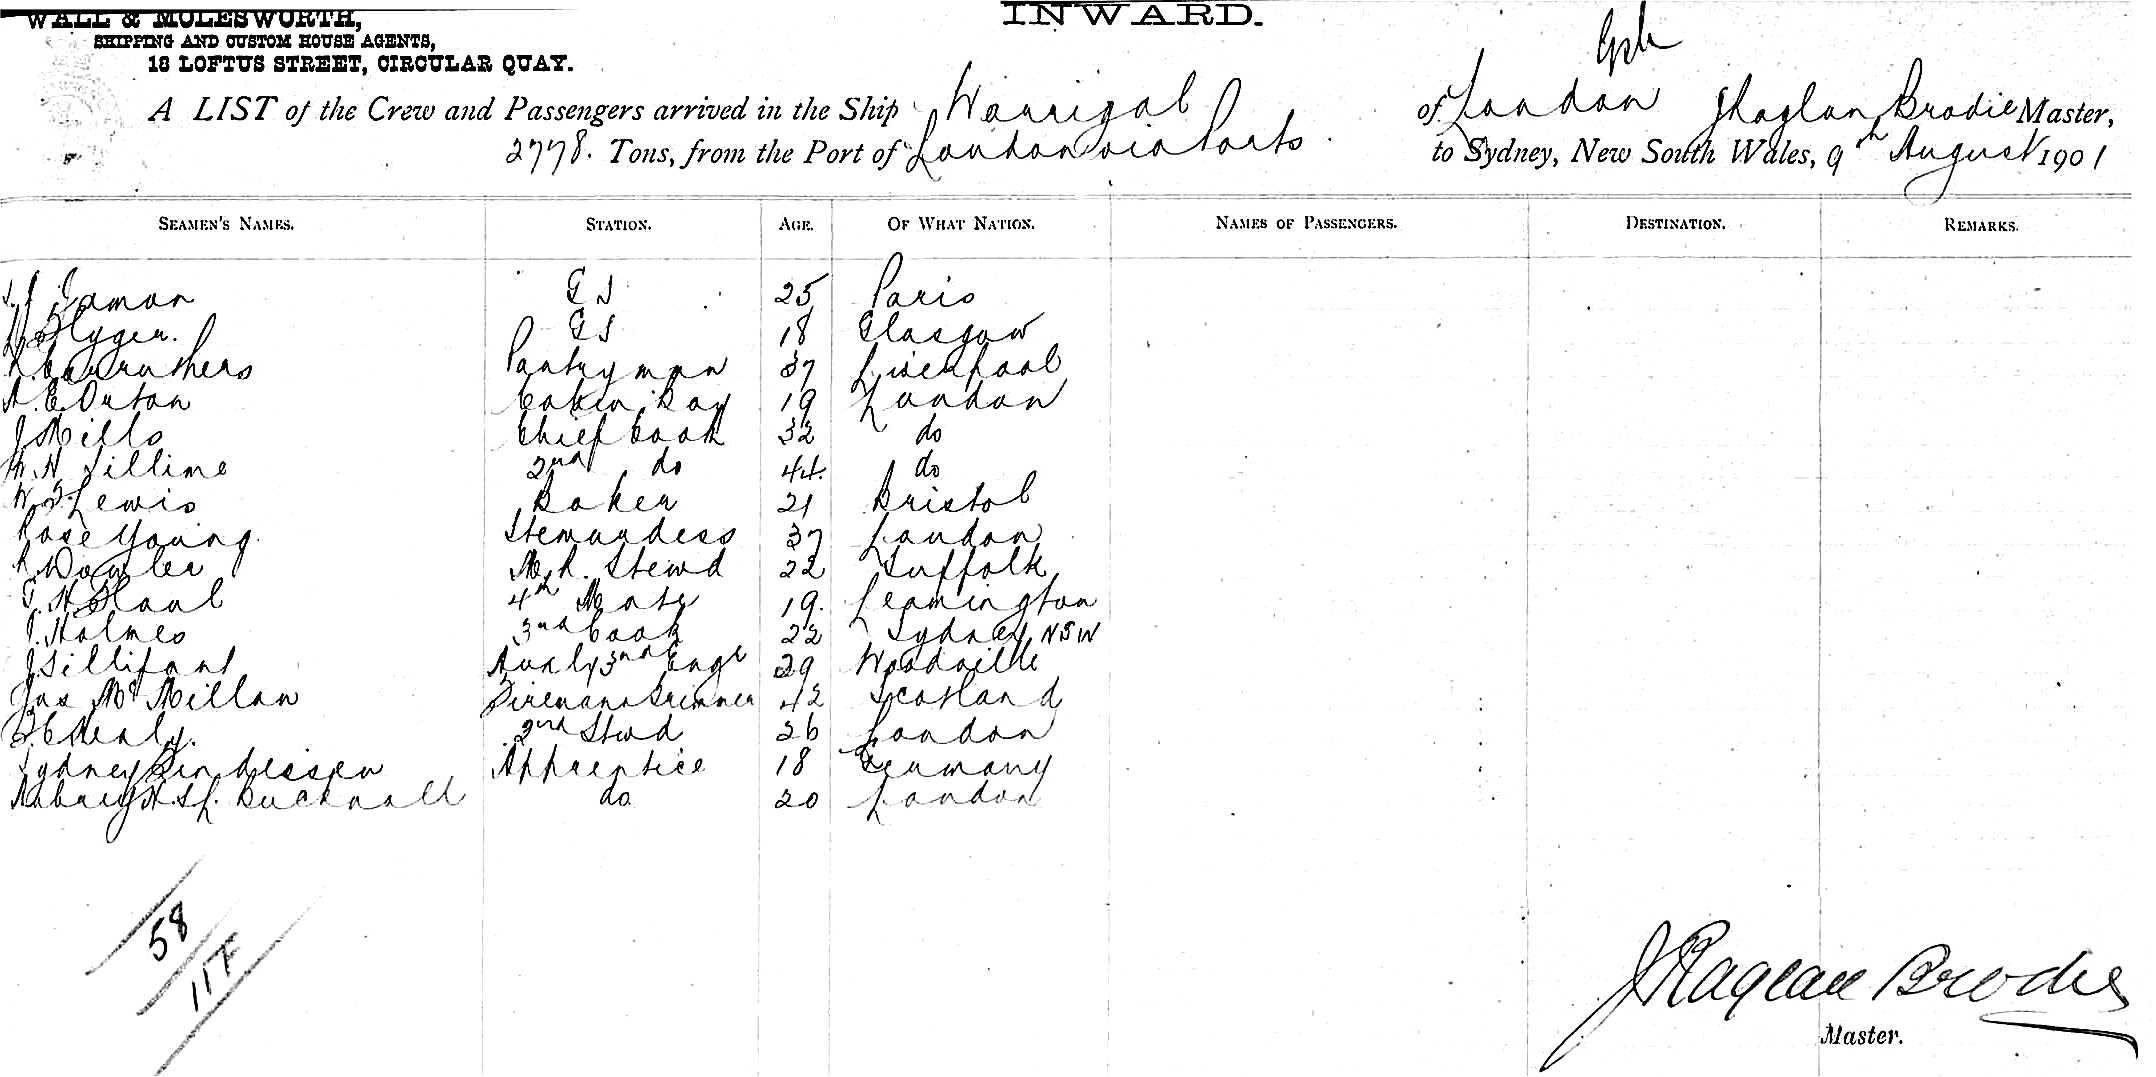 WALL & MOLESWORTH,
SHIPPING AND CUSTOM HOUSE AGENTS,
18 LOFTUS STREET, CIRCULAR QUAY.
INWARD.
A LIST of the Crew and Passengers arrived in the Ship Warrigal of London J Raglan Brodie Master,
2778. Tons, from the Port of London via Ports to Sydney, New South Wales, 9th August 1901
SEAMEN'S NAMES. STATION. AGE. OF WHAT NATION. NAMES OF PASSENGERS. DESTINATION. REMARKS.
GS 25 Paris
GS 18 Glasgow
R. Carruthers Pantryman 37 Liverpool
A. E. Orton Cabin Boy 19 London
J Mills Chief Cook 32 do
2nd do 44. do
Lewis Baker 21 Bristol
Rose Young Stewardess 37 London
M. R. Stewd 22 Suffolk
4th Mate 19. Leamington
J. Holmes 3rd Cook 22 Sydney NSW
J Sillifant 3rd Engr 29 Woodville
Jas McMillan Fireman & Trimmer 42 Scotland
Healy. 2nd Stwd 26 London
Sydney Apprentice 18 Germany
Aubrey H. St. L. Bucknall do 20 London
58
117
J Raglan Brodie
Master.